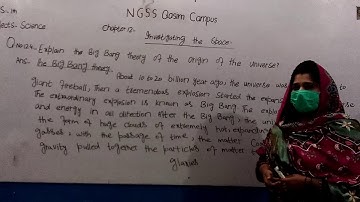 S. m
NGSS Qasim Campus
ects. Science
chapter 12.
Investigating the Space.
Explain the Big Bang theory of the origin of the universe?
Ans. Big Bang theory.
About 10 to 20 billion year ago, the universe was
giant fireball, Then a tremendous explosion started the expan
The extraordinary explosion is known as Big Bang. The explo
and energy in all direction. After the Big Bang, the uni
the form of huge clouds of extremely hot, expanding
gasses, with the passage of time, the matter
gravity pulled together the particles of matter